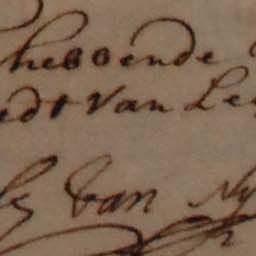 hebbende
edt Van Le
van Ny